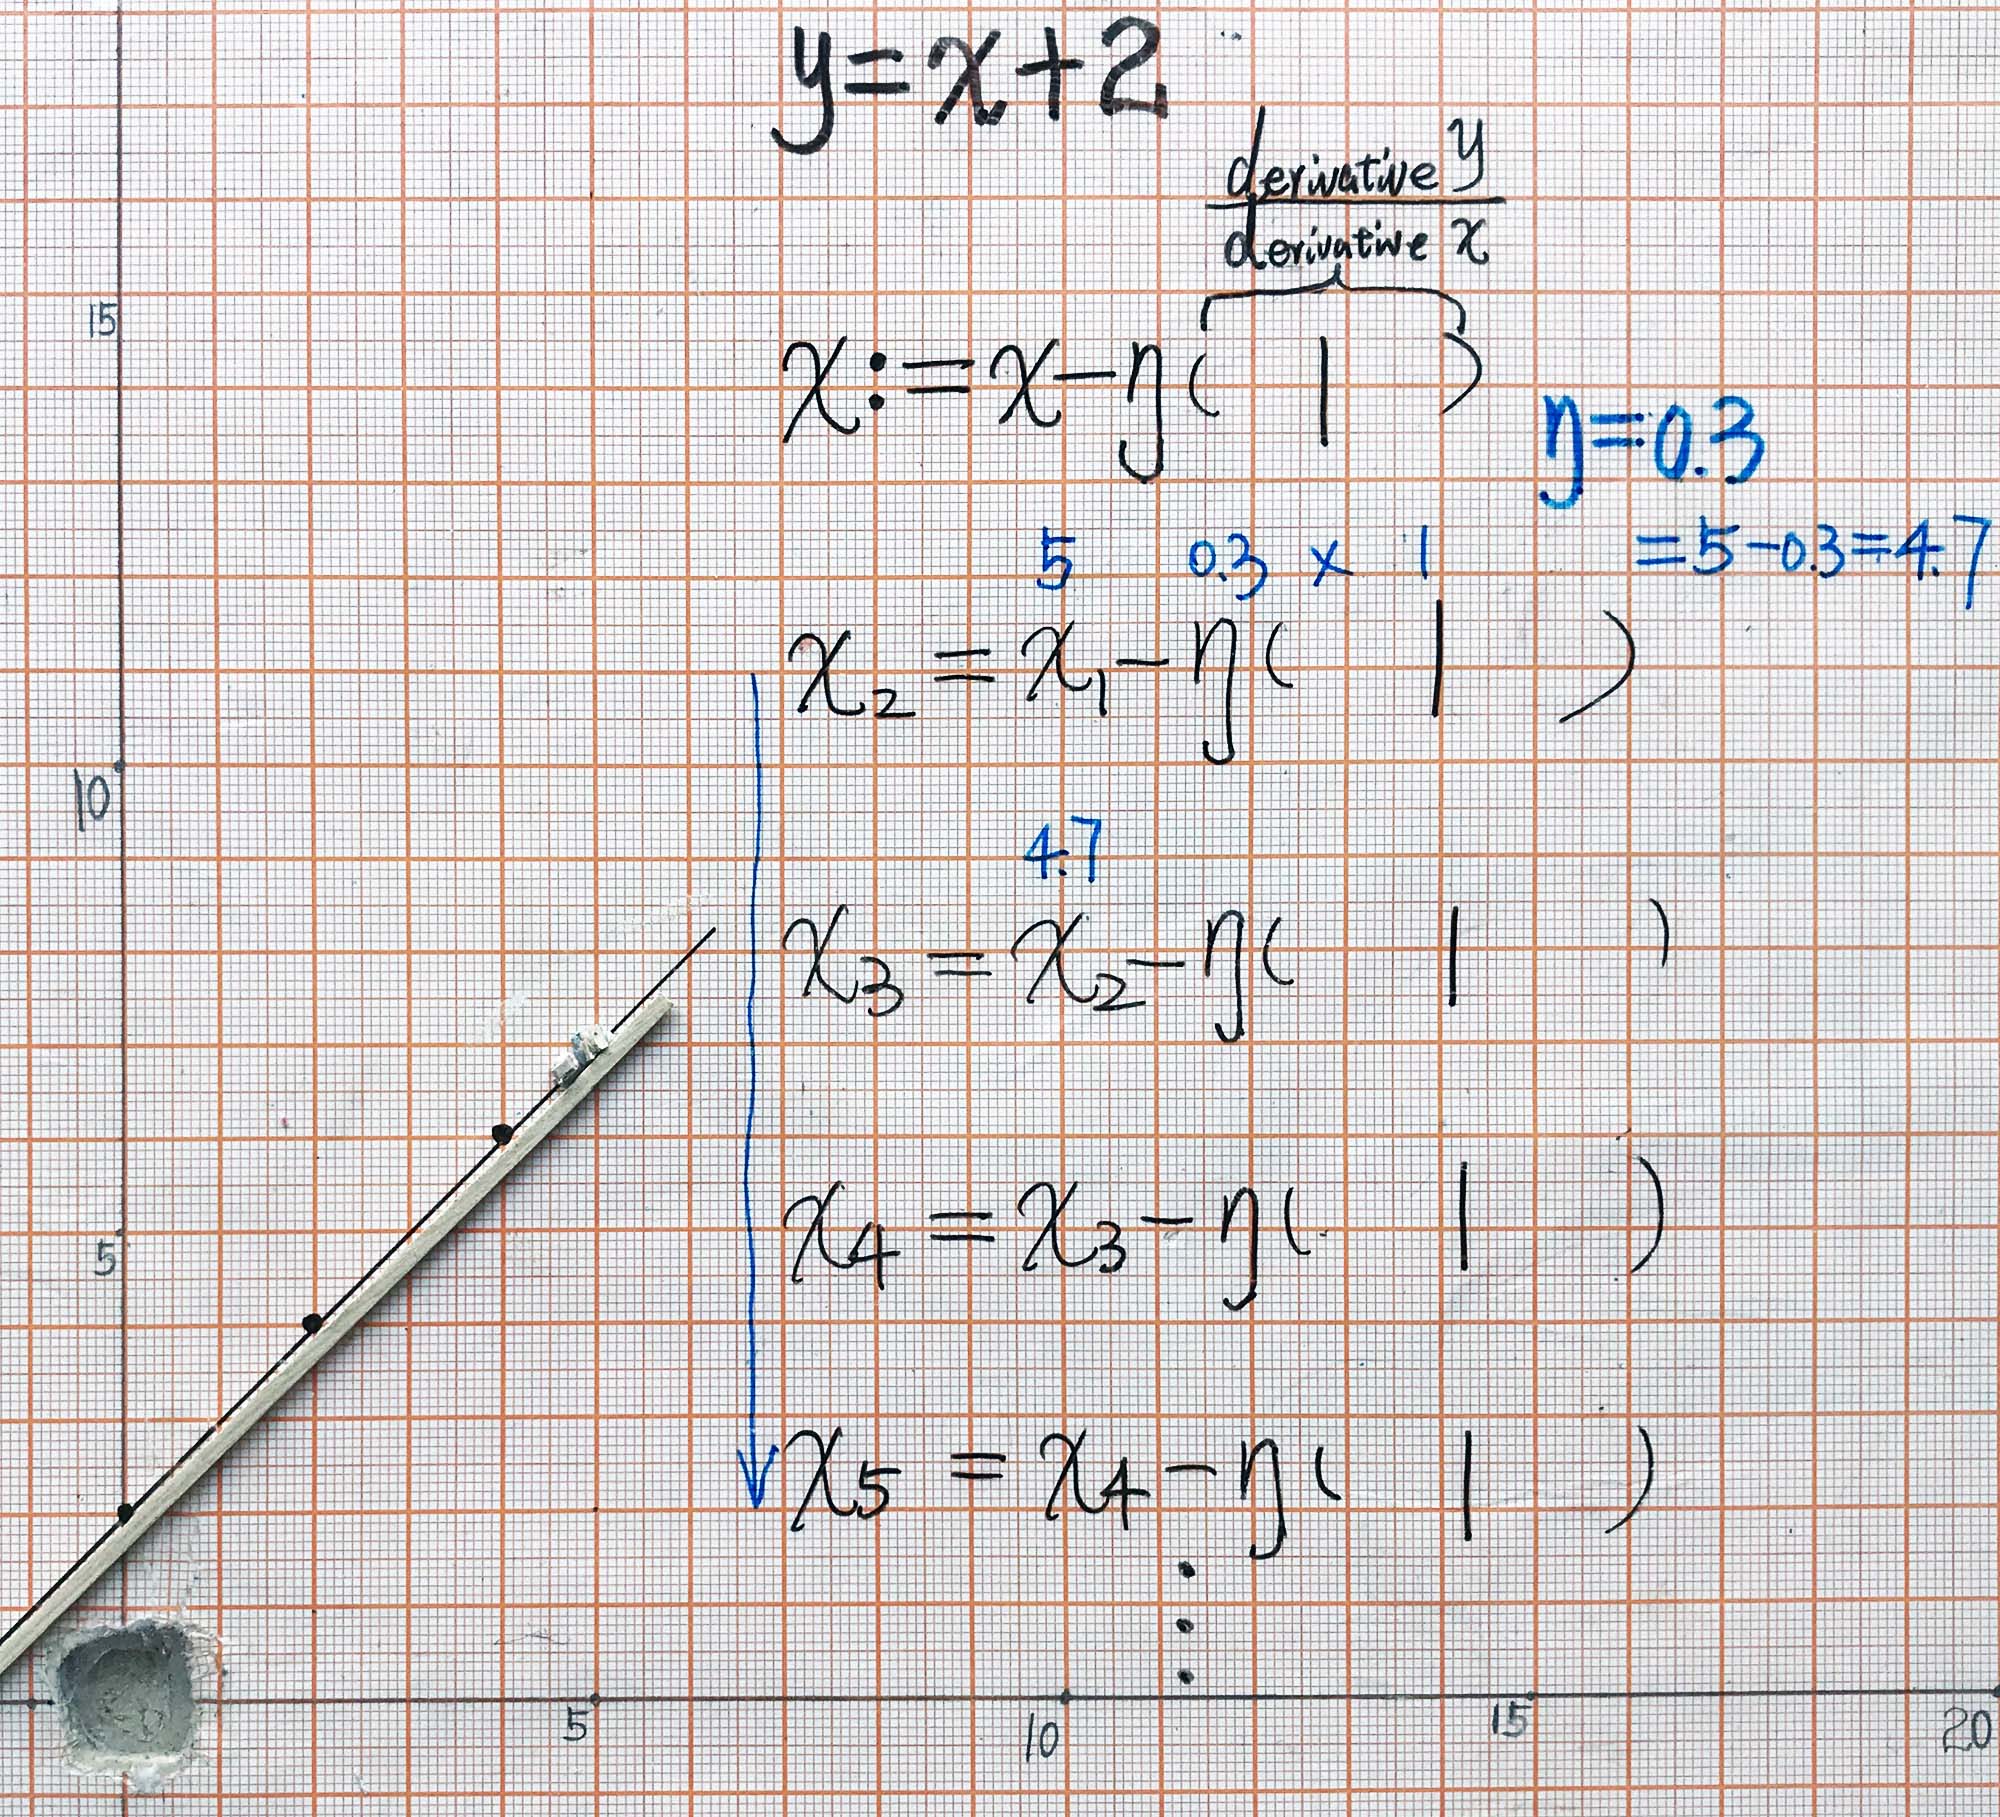 y=x+2
derivative y
derivative x
x:=x-η( 1 )
η=0.3
5 0.3 x 1 =5-0.3=4.7
x₂ = x₁-η( 1 )
4.7
x₃ = x₂-η( 1 )
x₄ = x₃-η( 1 )
x₅ = x₄-η( 1 )
15
10
5
5
10
15
20